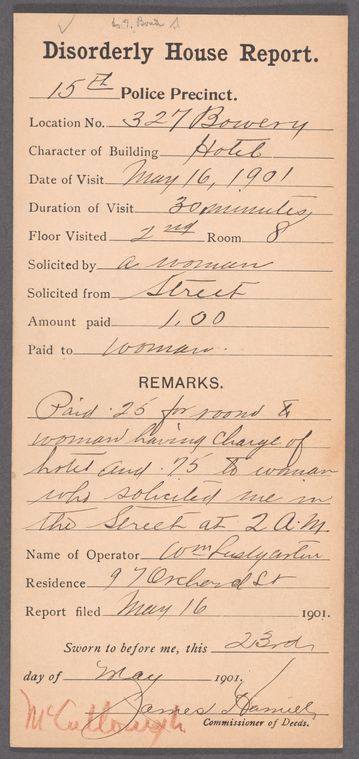 Disorderly House Report.
15th Police Precinct.
Location No. 327 Bowery
Character of Building Hotel
Date of Visit May 16, 1901
Duration of Visit 30 minutes
Floor Visited 2nd Room 8
Solicited by a woman
Solicited from Street
Amount paid 1.00
Paid to woman.
REMARKS.
Paid .25 for room to
woman having charge of
hotel and .75 to woman
who solicited me in
the Street at 2 A.M.
Name of Operator Wm Lustgarten
Residence 97 Orchard St
Report filed May 16 1901.
Sworn to before me, this 23rd
day of May 1901.
James Hamiel
McCullough Commissioner of Deeds.